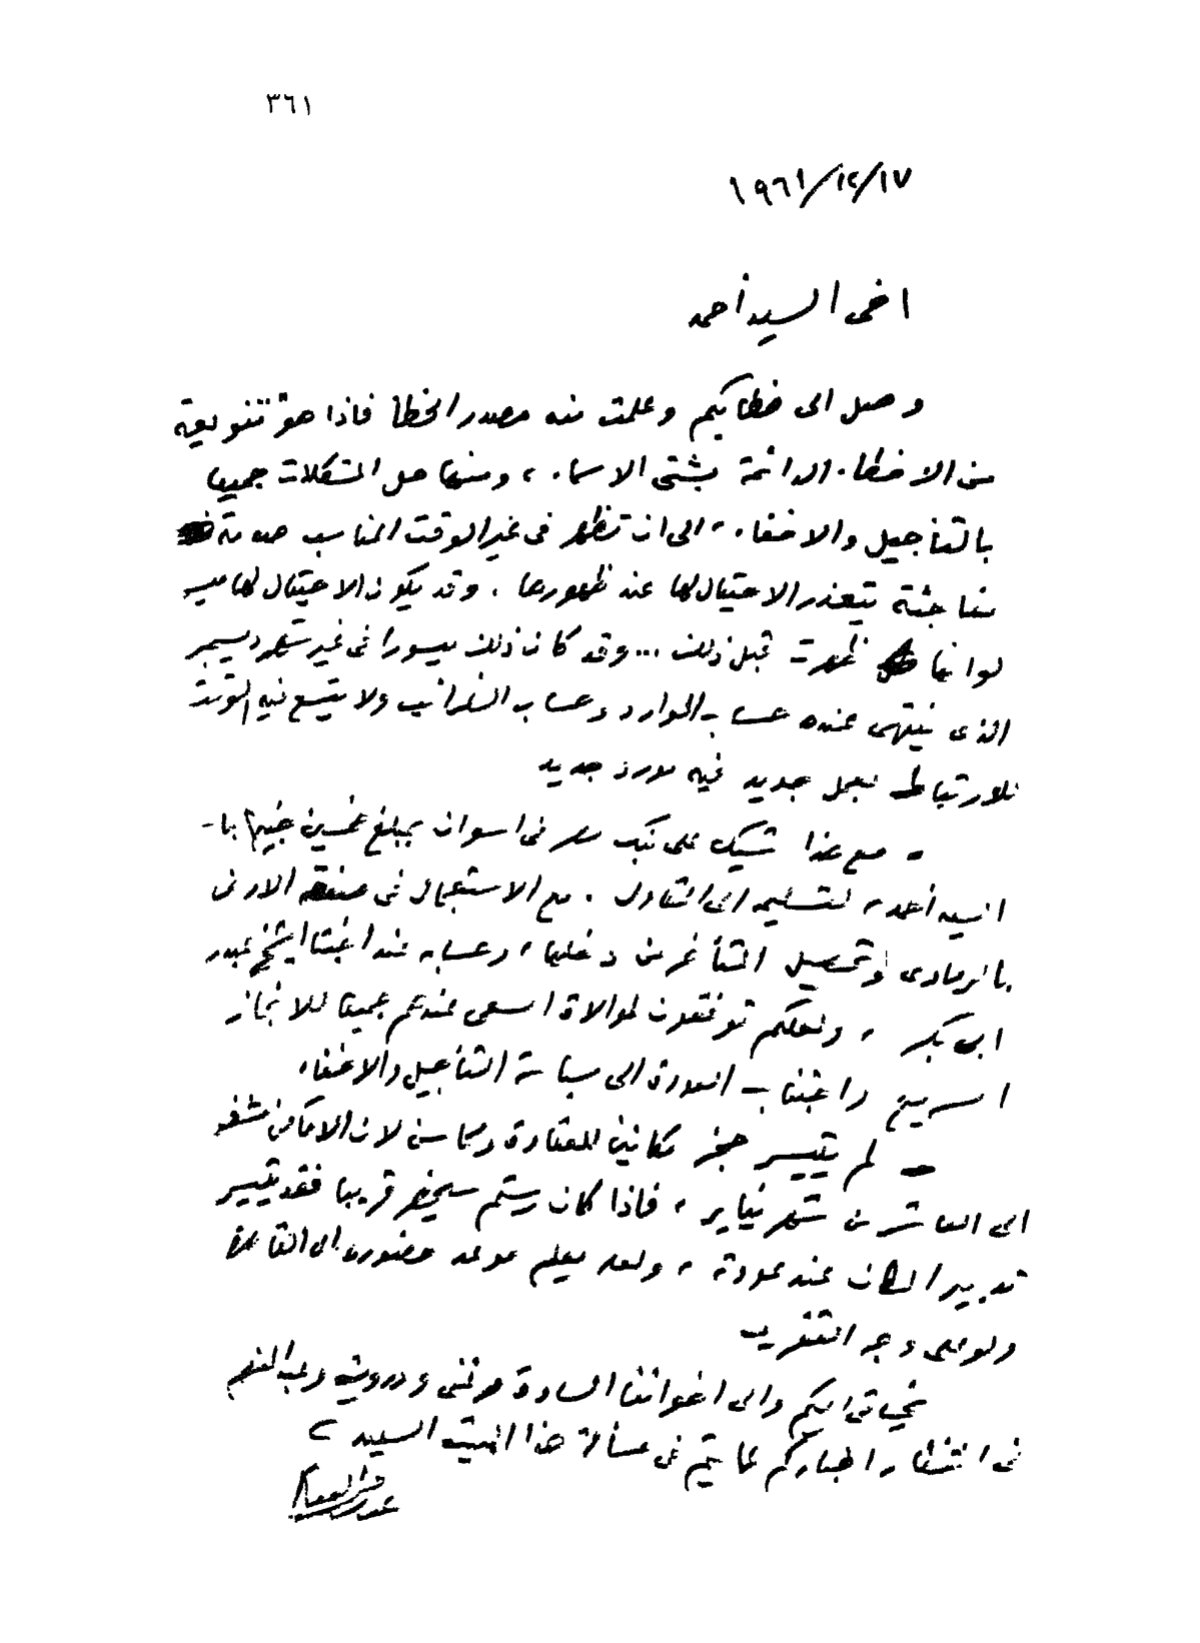 ٣٦١
١٩٦١/١٢/١٧
اخى السيد أحمد
وصل الى خطابكم وعلمت منه مصدر الخطأ فاذا هو تنويعة
من الاخطاء الدائمة بشتى الاسماء، ومنها حل المشكلات جميعا
بالتأجيل والاخفاء، الى ان تظهر فى غير الوقت المناسب
مفاجئة يتعذر الاحتيال لها عند ظهورها. وقد يكون الاحتيال لها
لو انها ظهرت قبل ذلك ... وقد كان ذلك ميسورا فى غير شهر ديسمبر
الذى ينتهى عنده حساب الموارد وحساب الضرائب ولا يتسع فيه الوقت
للارتباط بعمل جديد فيه مورد جديد
- مع هذا شيك على بنك مصر فى اسوان بمبلغ خمسين جنيها با
السيد أحمد، لتسليمه الى المقاول. مع الاستعجال فى الاردنى
بالرمادى وتحصيل المتأخر من دخلها، وحسابه عند الشيخ
ابى بكر، ولعلكم توفقون لموالاة السعى عندهم جميعا للانجاز
السريع واجتناب العودة الى سياسة التأجيل والاخفاء
- لم يتيسر حجز مكانين للعقادة ومحاسن لان الاماكن
الى العاشر من شهر يناير، فاذا كان سيحضر قريبا فقد يتيسر
تدبير المكان عند عودته، ولعله يعلم موعد حضوره الى القاهرة
ولو على وجه التقريب
تحياتى اليكم والى اخواننا السادة مرتضى ودرويش وعبد المنعم
فى انتظار اخباركم عما يتم فى مسألة هذا البيت السعيد
عباس العقاد